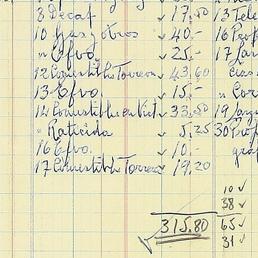 3 Decaf ✓ 17,50 13 Tele
10 Gas y otros ✓ 40,- 16 Prof
" Efvo. ✓ 25,- 17 Jar
12 Comestible Torreon ✓ 43,60 cas
13 Efvo. ✓ 15,- " Cor
14 Comestible en Vict ✓ 33,50 19 Jar
" Raticida ✓ 5,25 30 Prof
16 Efvo. ✓ 10,- gra
17 Comestible Torreon ✓ 19,20
10 ✓
38 ✓
✓ 315.80 65 ✓
31 ✓